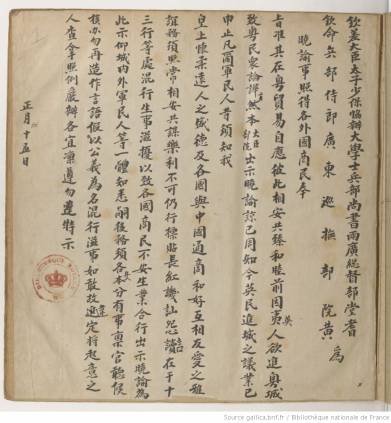 欽差大臣太子少保協辦大學士兵部尚書兩廣總督部堂耆
欽命兵部侍郎廣東巡撫部院黃 為
曉諭事照得各外國商民奉
旨准其在粵貿易自應彼此相安共臻和睦前因英夷人欲進粵城
致粵民衆論譁然本大臣部院出示曉諭諒已周知今英民進城之議業已
申止凡爾軍民人等須知我
皇上懷柔遠人之盛德及各國與中國通商和好互相友愛之雅
誼務須照常相安共謀樂利不可仍行標貼長紅譏訕怨讟在于十
三行等處混行生事滋擾以致各國商民不安生業合行出示曉諭為
此示仰城內外軍民人等一體知悉嗣後務須各安本分有事稟官聽候
核办勿再造作言語假以公義為名混行滋事如敢故違定將起意之
人查拿照例嚴辦各宜凜遵勿違特示
正月十五日
Source gallica.bnf.fr / Bibliothèque nationale de France